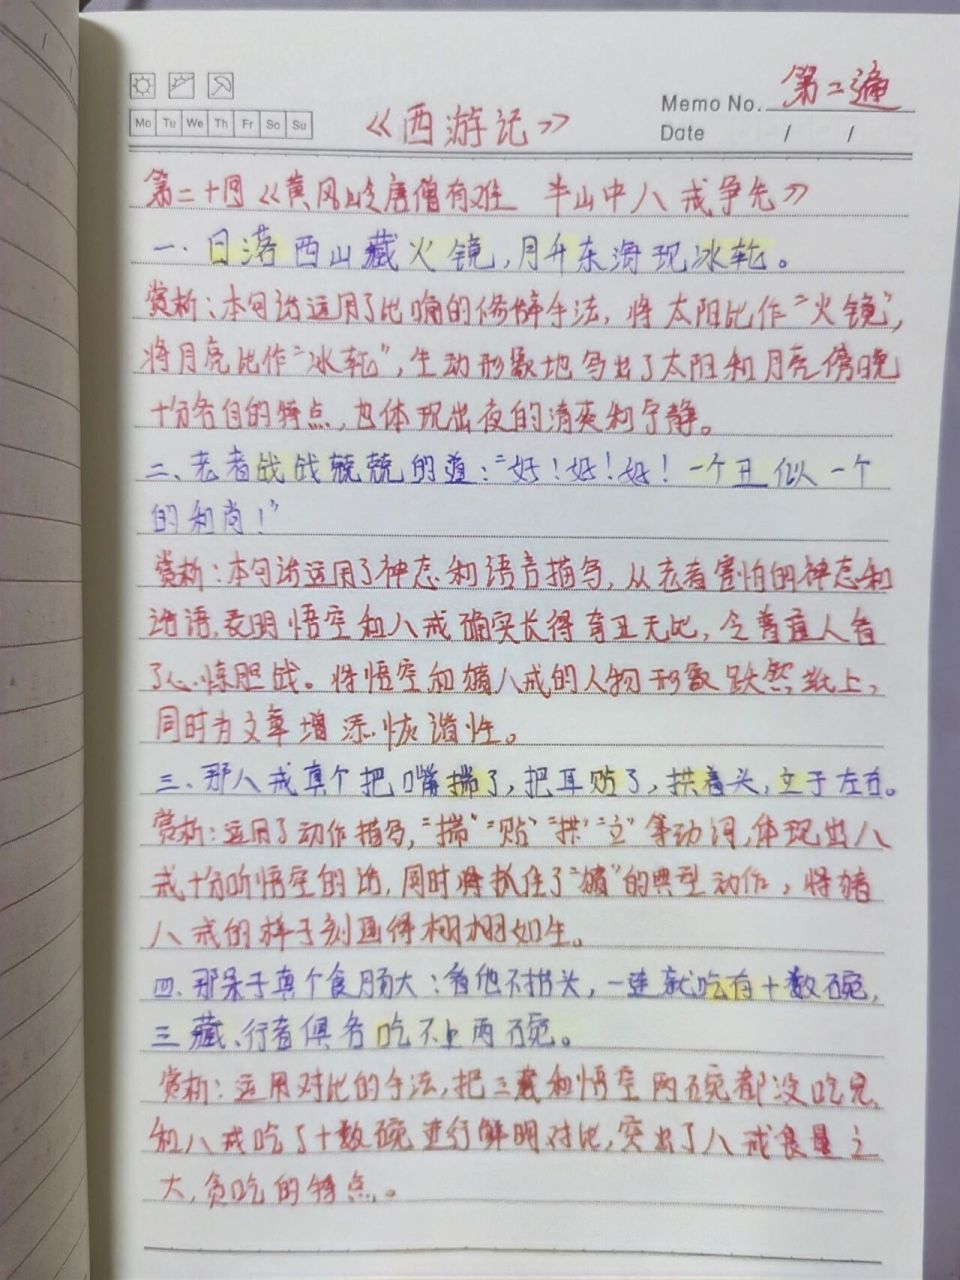 Memo No. 第二遍
Mo Tu We Th Fr Sa Su
Date / /
《西游记》
第二十回《黄风岭唐僧有难 半山中八戒争先》
一、日落西山藏火镜,月升东海现冰轮。
赏析:本句话运用了比喻的修辞手法,将太阳比作“火镜”,
将月亮比作“冰轮”,生动形象地写出了太阳和月亮傍晚
十分各自的特点,也体现出夜的清爽和宁静。
二、老者战战兢兢的道:“好!好!好!一个丑似一个
的和尚!”
赏析:本句话运用了神态和语言描写,从老者害怕的神态和
话语,表明悟空和八戒确实长得奇丑无比,令普通人看
了心惊胆战。将悟空和猪八戒的人物形象跃然纸上,
同时为文章增添恢谐性。
三、那八戒真个把嘴揣了,把耳贴了,拱着头,立于左右。
赏析:运用了动作描写,“揣”“贴”“拱”“立”等动词,体现出八
戒十分听悟空的话,同时将抓住了“猪”的典型动作,将猪
八戒的样子刻画得栩栩如生。
四、那呆子真个食肠大:看他不抬头,一连就吃有十数碗,
三藏、行者俱各吃不上两碗。
赏析:运用对比的手法,把三藏和悟空两碗都没吃完,
和八戒吃了十数碗进行鲜明对比,突出了八戒食量之
大,贪吃的特点。